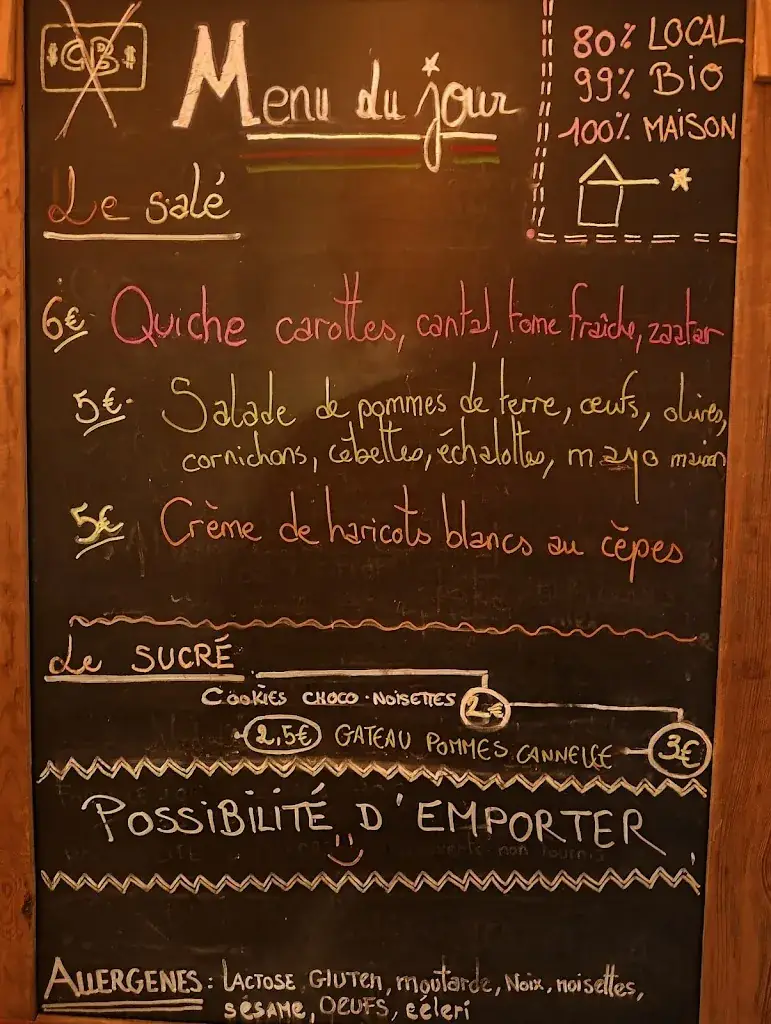 $CB$
Menu du jour
80% LOCAL
99% BiO
100% MAiSON
Le salé
6€ Quiche carottes, cantal, tome fraîche, zaatar
5€ Salade de pommes de terre, œufs, olives,
cornichons, cébettes, échalottes, mayo maison
5€ Crème de haricots blancs au cèpes
Le SUCRÉ
COOKiES CHOCO·NOiSETTES 2€
2,5€ GATEAU POMMES CANNELLE 3€
POSSiBiLiTÉ D'EMPORTER
ALLERGENES: LACTOSE, GLUTEN, moutarde, Noix, noisettes,
SÉSAME, OEUFS, céleri